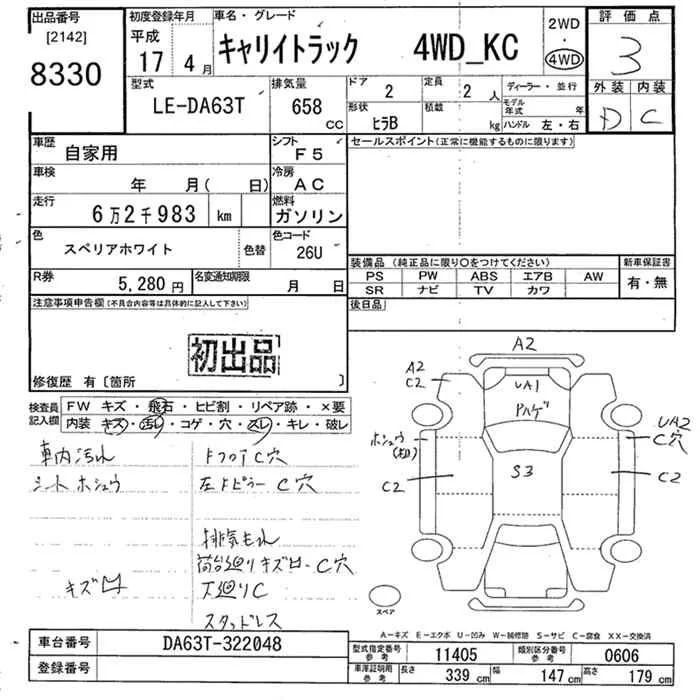 出品番号 初度登録年月 車名・グレード 評価点
[2142] 平成 2WD
8330 17年 4月 キャリイトラック 4WD_KC 4WD 3
型式 排気量 ドア 定員 ディーラー・並行 外装 内装
LE-DA63T 658 CC 2 2人 モデル年式 年 D C
形状 ヒラB 積載 kg ハンドル 左・右
車歴 自家用 シフト F5 セールスポイント(正常に機能するものに限ります)
車検 年 月( 日) 冷房 AC
走行 6万2千983 km 燃料 ガソリン
色 スペリアホワイト 色替 色コード 26U
装備品(純正品に限り○をつけてください) 新車保証書
PS PW ABS エアB AW 有・無
SR ナビ TV カワ
R券 5,280円 名変通知期限 月 日
注意事項申告欄(不具合内容等は具体的に記入して下さい) 後日品
初出品
修復歴 有〔箇所 〕
検査員記入欄 FW キズ・飛石・ヒビ割・リペア跡・×要
内装 キズ・汚レ・コゲ・穴・スレ・キレ・破レ
車内汚れ ドフロアC穴
シート ホシュウ 左ドピラー C穴
排気もれ
荷台廻りキズ凹・C穴
キズ凹 下廻りC
スタッドレス
A2
A2
C2
UA1
ハゲ
UA2
C穴
ホシュウ
C2 S3 C2
スペア
A−キズ E−エクボ U−凹み W−補修跡 S−サビ C−腐食 XX−交換済
車台番号 DA63T-322048
型式指定番号 参考 11405 類別区分番号 参考 0606
登録番号
車庫証明用 参考 長さ 339 cm 幅 147 cm 高さ 179 cm